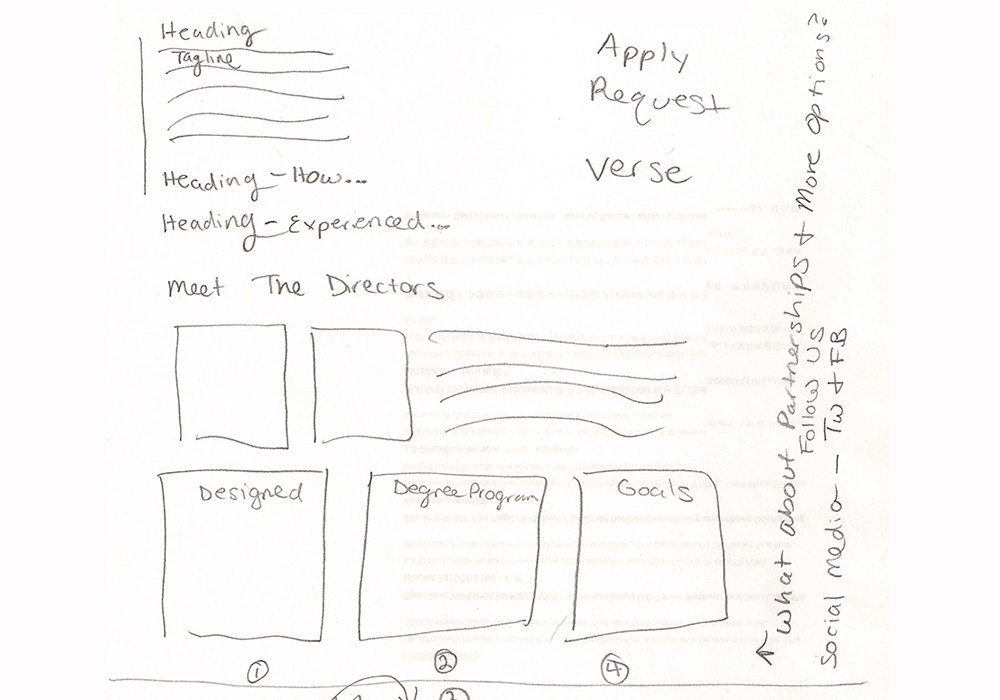 Heading
Tagline
Apply
Request
Verse
Heading - How...
Heading - Experienced...
Meet The Directors
Designed
Degree Program
Goals
① ② ④
3
↖ What about Partnerships + More Options?
Follow US
Social media - TW + FB